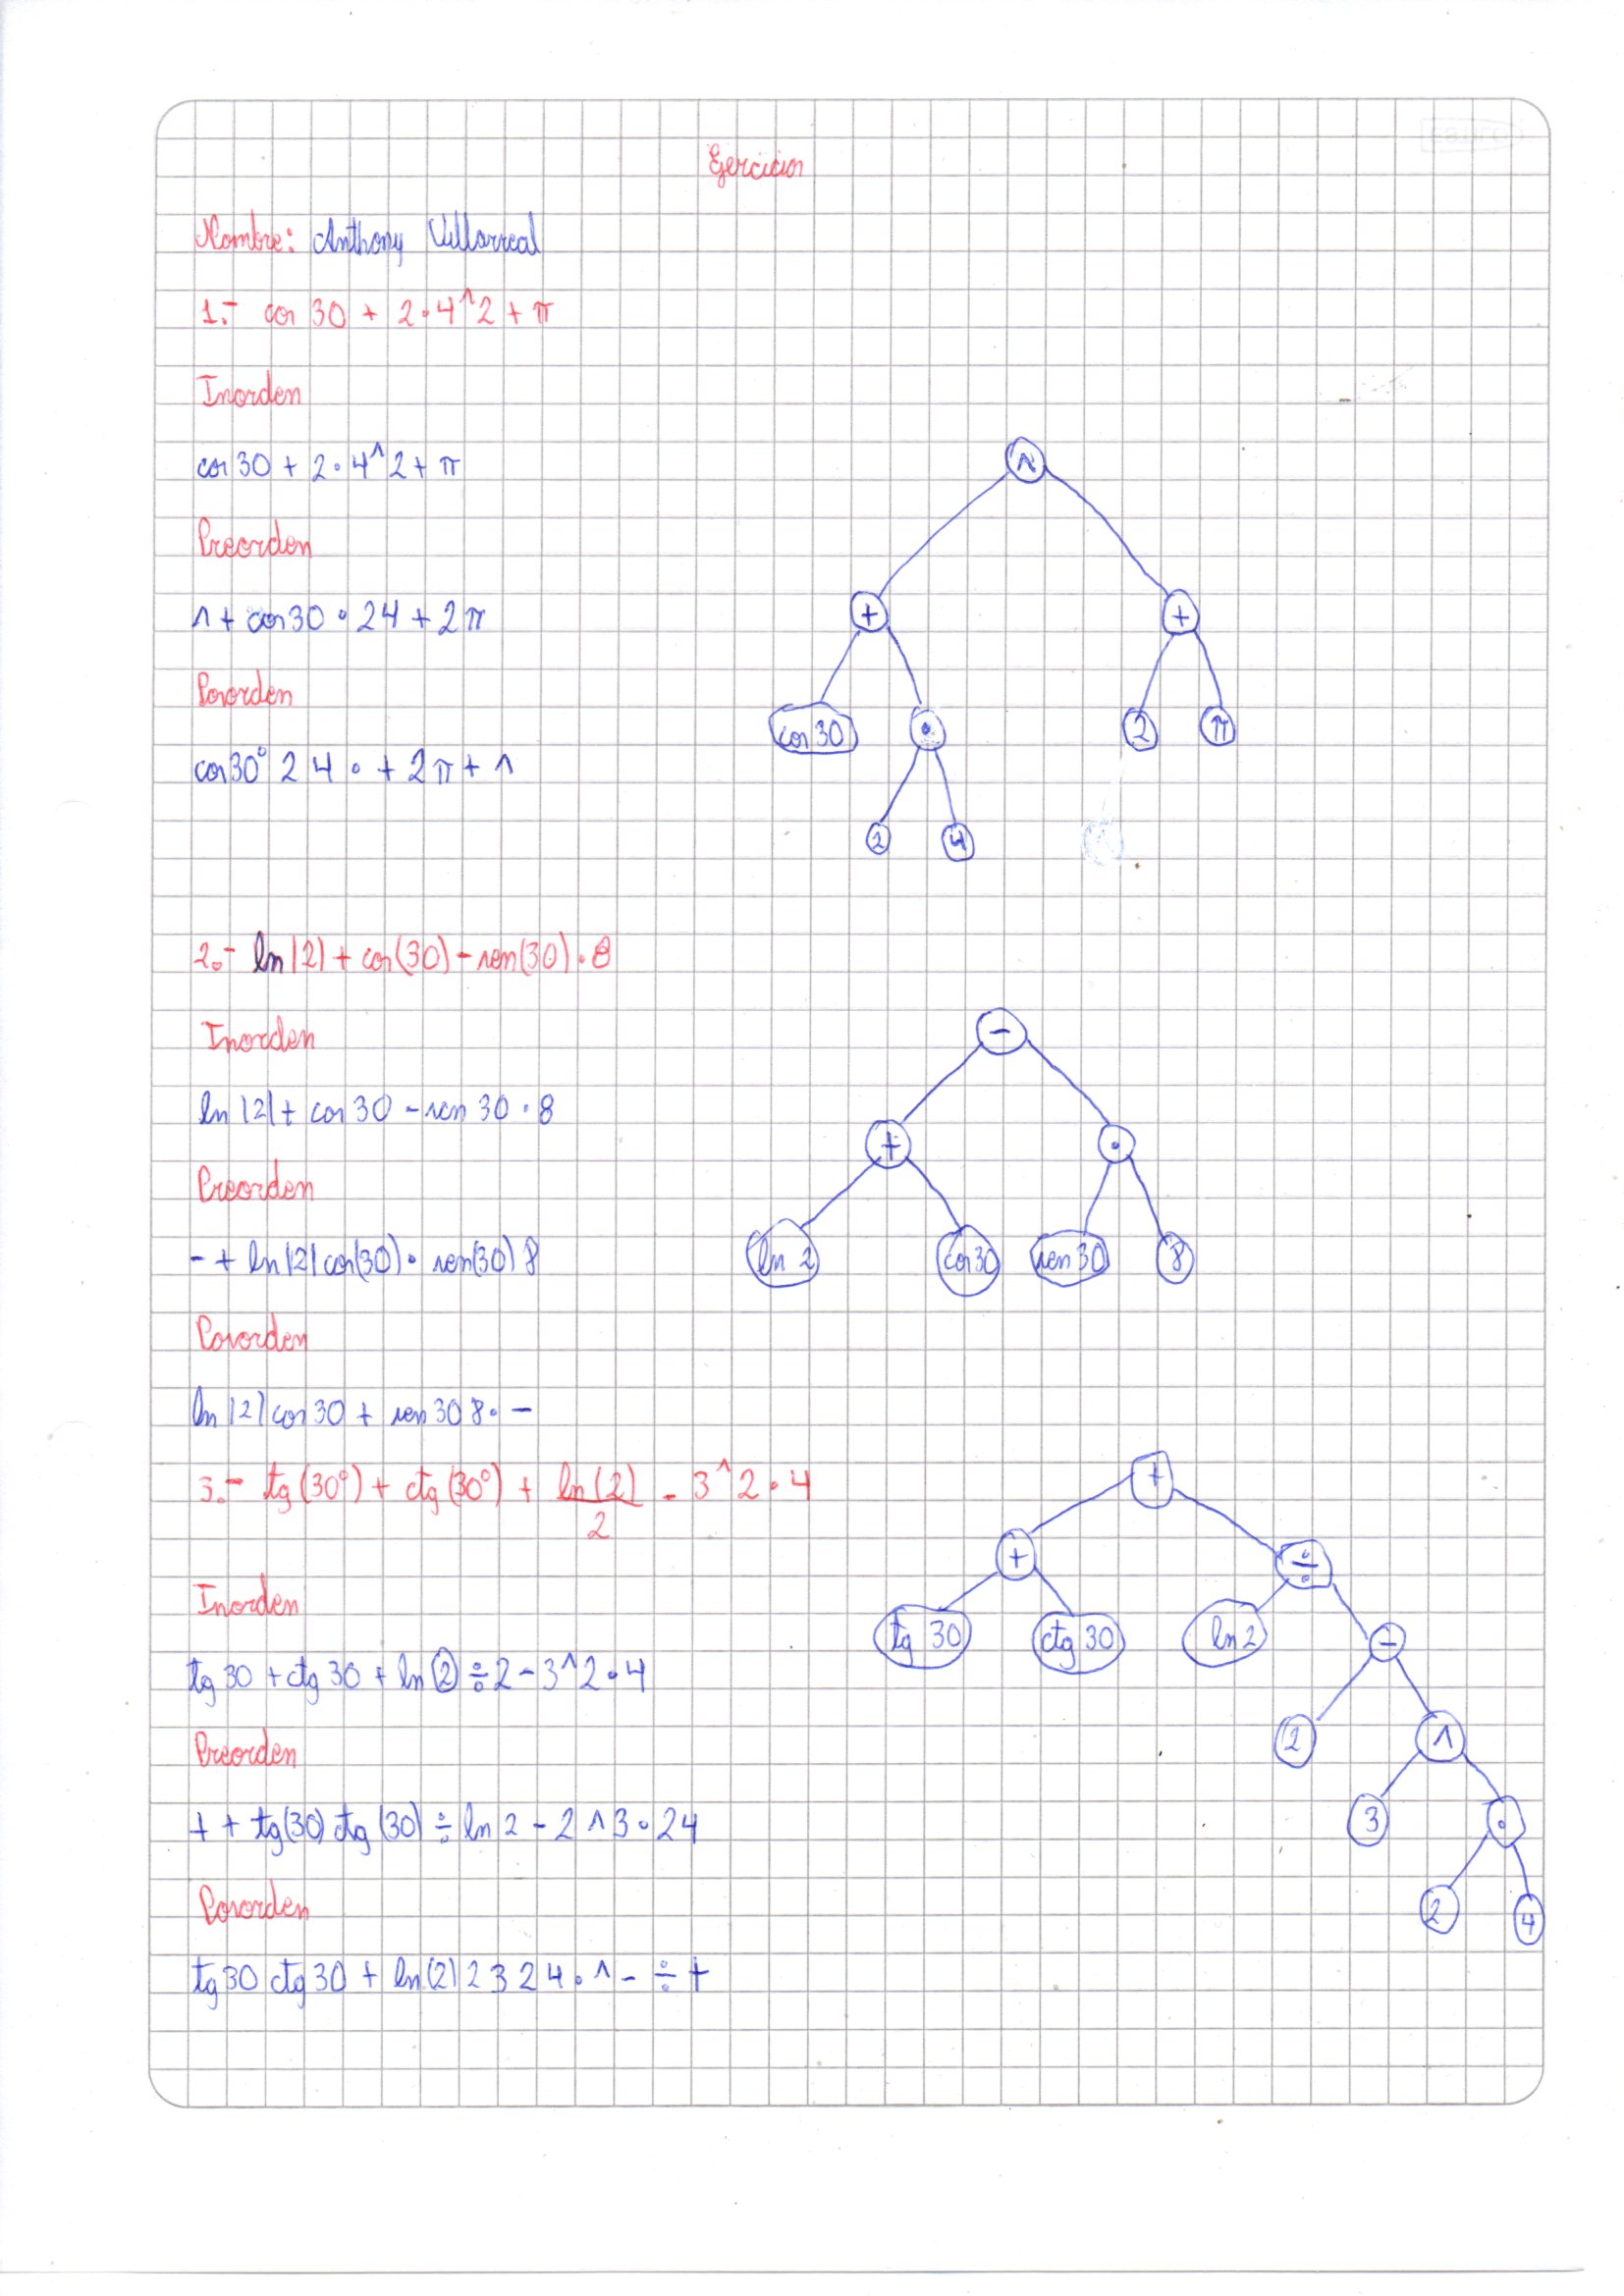 Ejercicios
Nombre: Anthony Villarreal
1.- cos 30 + 2·4^2 + π
Inorden
cos 30 + 2·4^2 + π
Preorden
^ + cos 30 · 2 4 + 2 π
Posorden
cos 30° 2 4 · + 2 π + ^
^
+ +
cos 30 · 2 π
2 4
2.- ln|2| + cos(30) - sen(30)·8
Inorden
ln|2| + cos 30 - sen 30 · 8
Preorden
- + ln|2| cos(30) · sen(30) 8
Posorden
ln|2| cos 30 + sen 30 8 · -
-
+ ·
ln 2 cos 30 sen 30 8
3.- tg (30°) + ctg (30°) + ln(2) - 3^2·4
2
Inorden
tg 30 + ctg 30 + ln 2 ÷ 2 - 3^2·4
Preorden
+ + tg(30) ctg (30) ÷ ln 2 - 2 ^ 3 · 2 4
Posorden
tg 30 ctg 30 + ln(2) 2 3 2 4 · ^ - ÷ +
+
+ ÷
tg 30 ctg 30 ln 2 -
2 ^
3 ·
2 4